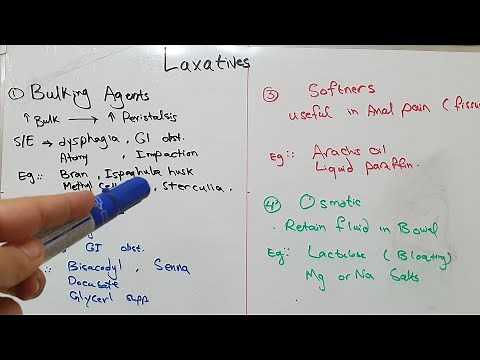 Laxatives
① Bulking Agents
↑ Bulk → ↑ Peristalsis
S/E → dysphagia, GI obst.
Atony , Impaction
Eg:: Bran , Ispaghula husk
, Sterculia .
GI obst.
Bisacodyl , Senna
Docusate
Glycerl supp
③ Softners
useful in Anal pain (fissu
Eg:: Arachs oil
Liquid paraffin.
④ Osmotic
Retain fluid in Bowel
Eg: Lactulose (Bloating)
Mg or Na Salts